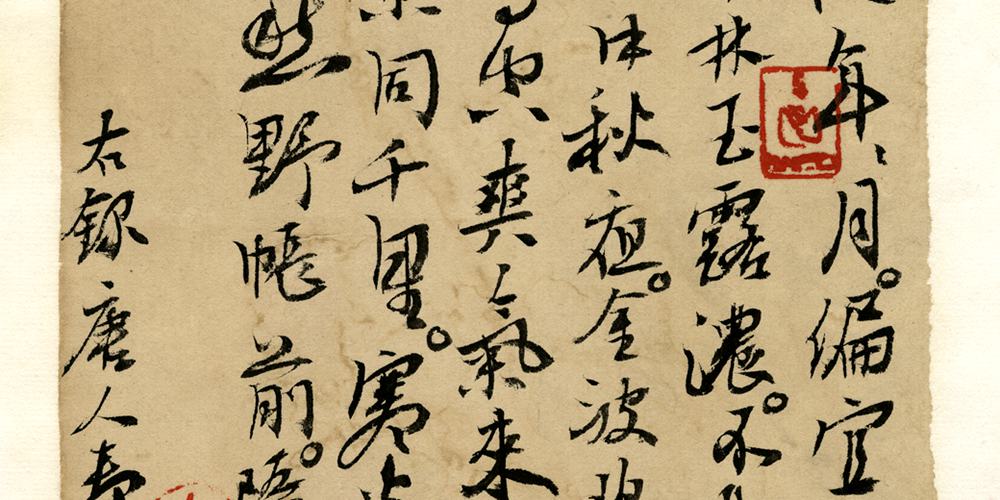 年、月。編宜
林玉露濃。不
中秋夜。金波
爽氣來
同千里。寒
愁野帳前。
右録唐人